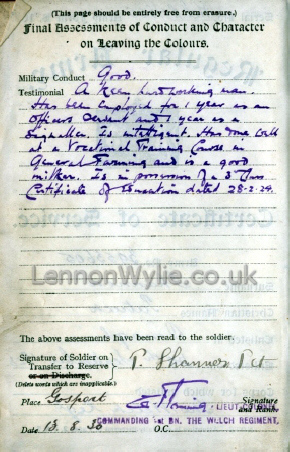 (This page should be entirely free from erasure.)
Final Assessments of Conduct and Character
on Leaving the Colours.
Military Conduct Good.
Testimonial A keen hardworking man.
Has been employed for 1 year as an
Officers Servant and 1 year as a
Signaller. Is intelligent. Has done well
at a Vocational Training Course in
General Farming and is a good
milker. Is in possession of a 3rd Class
Certificate of Education dated 28-2-29.
LennonWylie.co.uk
The above assessments have been read to the soldier.
Signature of Soldier on
Transfer to Reserve P. Shannon Pct
or on Discharge.
(Delete words which are inapplicable.)
Signature
and Rank.
Place Gosport LIEUT. COLONEL
COMMANDING 1st BN. THE WELCH REGIMENT,
Date 13.8.35 O.C.